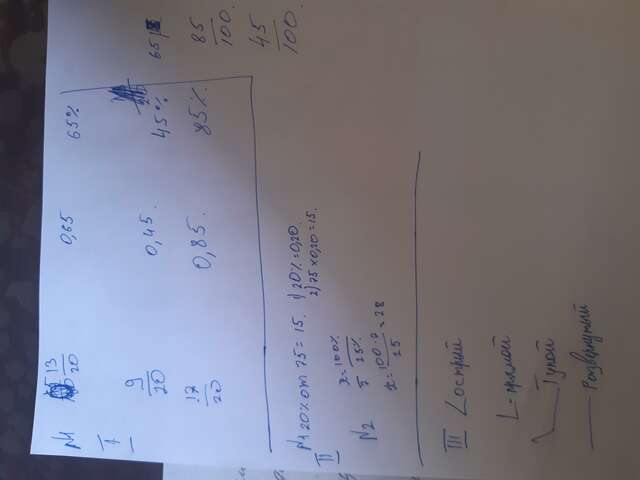 N1 13/20 0,65 65%
I 9/20 0,45. 45% 65
17/20 0,85. 85% 85/100.
45/100.
N1 20% от 75 = 15. 1) 20% = 0,20.
2) 75 x 0,20 = 15.
II
x = 100%
7 25%
N2 x = 100·7/25 = 28
III острый
L - прямой
Тупой
Развернутый